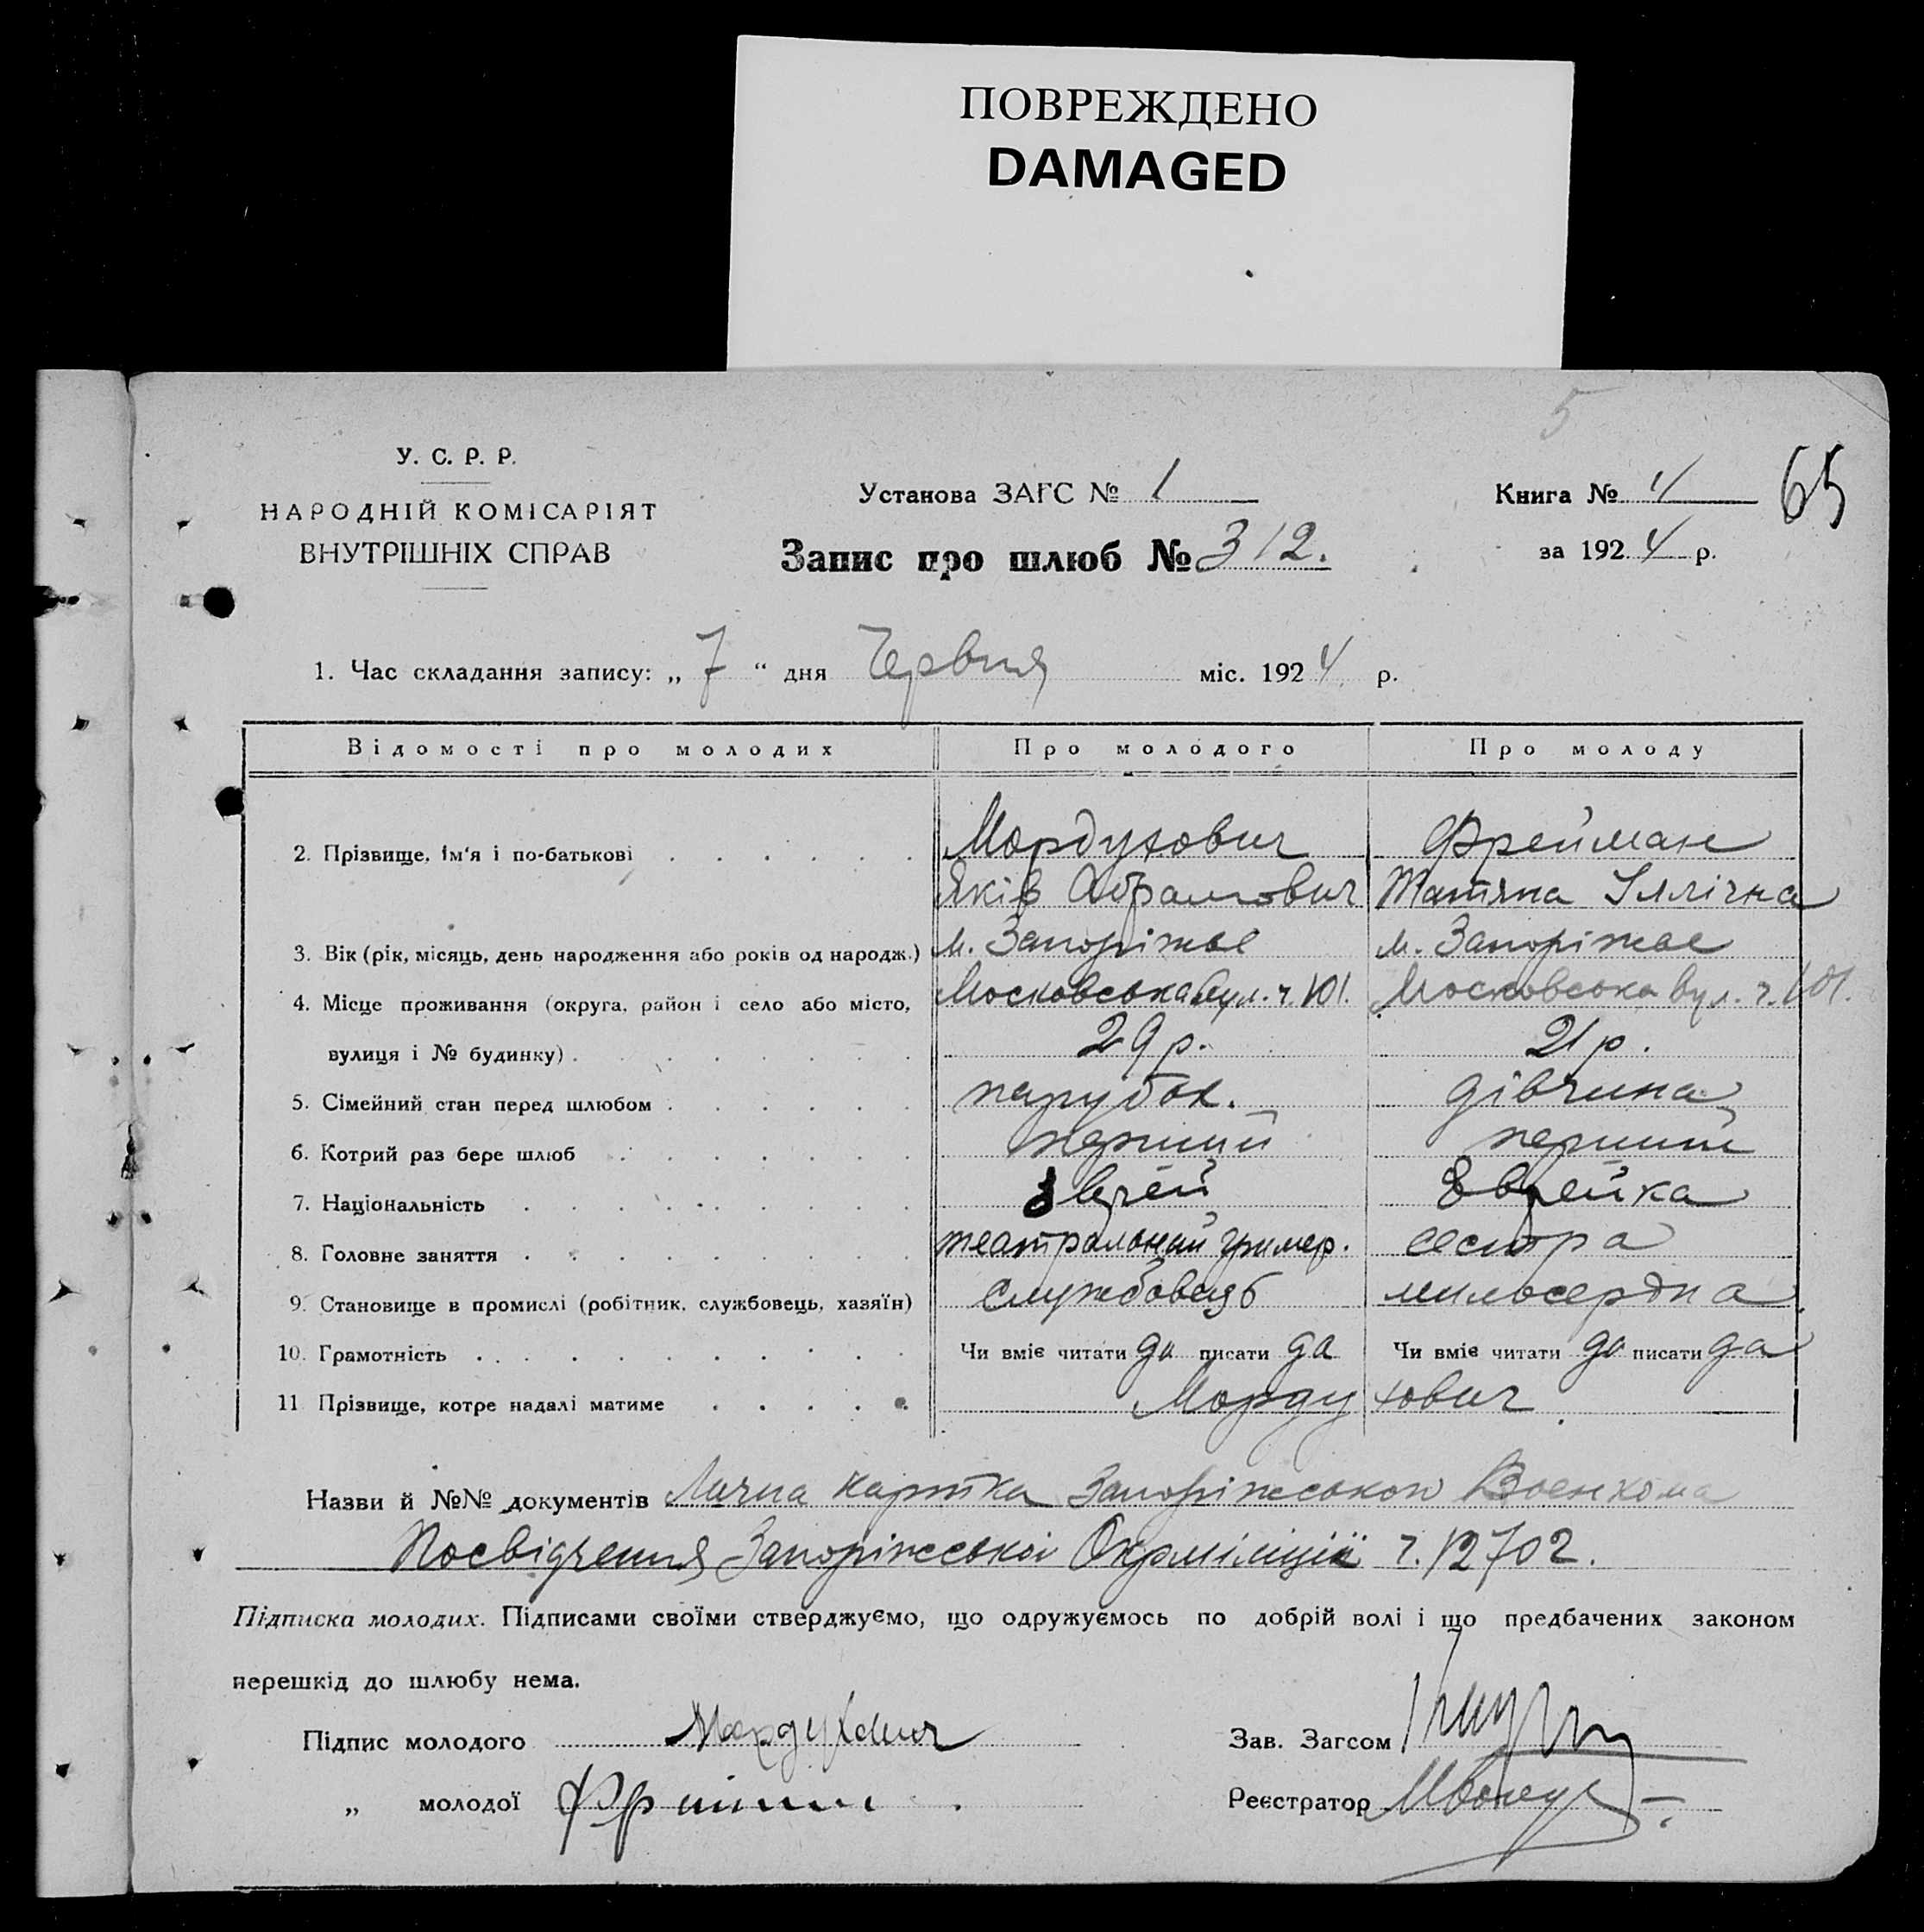 ПОВРЕЖДЕНО
DAMAGED
5
У. С. Р. Р.
НАРОДНІЙ КОМІСАРІЯТ
ВНУТРІШНІХ СПРАВ
Установа ЗАГС № 1
Запис про шлюб № 312.
Книга № 4
65
за 1924 р.
1. Час складання запису: „ 7 “ дня Червня міс. 1924 р.
Відомості про молодих Про молодого Про молоду
2. Прізвище, ім'я і по-батькові Мордухович Фрейман
Яків Абрамович Татяна Іллічна
3. Вік (рік, місяць, день народження або років од народж.) м. Запоріжже м. Запоріжже
4. Місце проживання (округа, район і село або місто, Московська вул. ч. 101. Московська вул. ч. 101.
вулиця і № будинку) 29 р. 21 р.
5. Сімейний стан перед шлюбом парубок. дівчина
6. Котрий раз бере шлюб перший перший
7. Національність Єврей Єврейка
8. Головне заняття театральний гример. сестра
9. Становище в промислі (робітник, службовець, хазяїн) службовець милосердна
10. Грамотність Чи вміє читати да писати да Чи вміє читати да писати да
11 Прізвище, котре надалі матиме Мордухович
Назви й №№ документів Лична картка Запоріжського Военкома
Посвідчення Запоріжської Окрміліції ч. 12702.
Підписка молодих. Підписами своїми стверджуємо, що одружуємось по добрій волі і що предбачених законом
перешкід до шлюбу нема.
Підпис молодого Мордухович
Зав. Загсом
„ молодої
Реєстратор